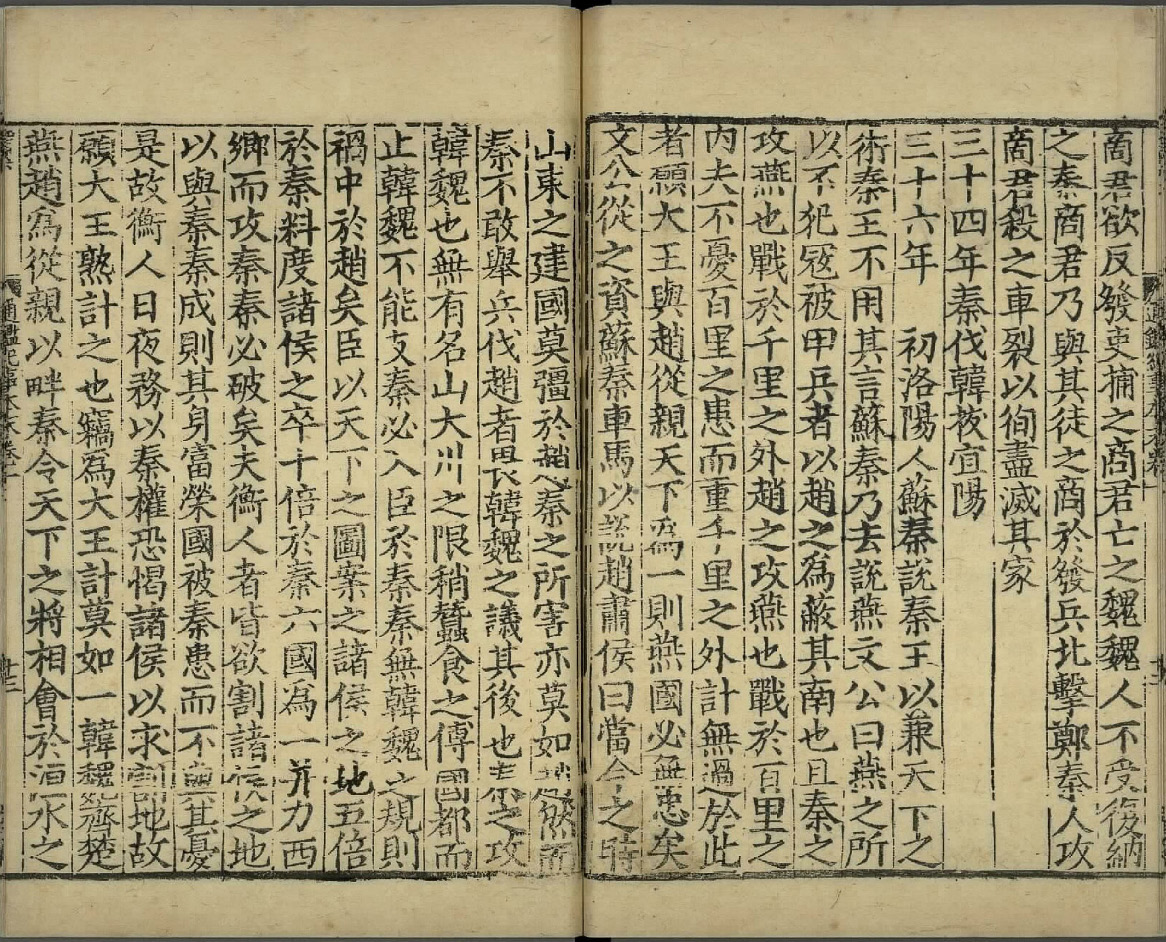 商君欲反發吏捕之商君亡之魏魏人不受復納
之秦商君乃與其徒之商於發兵北擊鄭秦人攻
商君殺之車裂以徇盡滅其家
三十四年秦伐韓拔宜陽
三十六年 初洛陽人蘇秦說秦王以兼天下之
術秦王不用其言蘇秦乃去說燕文公曰燕之所
以不犯寇被甲兵者以趙之為蔽其南也且秦之
攻燕也戰於千里之外趙之攻燕也戰於百里之
內夫不憂百里之患而重千里之外計無過於此
者願大王與趙從親天下為一則燕國必無患矣
文公從之資蘇秦車馬以說趙肅侯曰當今之時
山東之建國莫彊於趙秦之所害亦莫如趙然而
秦不敢舉兵伐趙者畏韓魏之議其後也秦之攻
韓魏也無有名山大川之限稍蠶食之傅國都而
止韓魏不能支秦必入臣於秦秦無韓魏之規則
禍中於趙矣臣以天下之圖案之諸侯之地五倍
於秦料度諸侯之卒十倍於秦六國為一并力西
鄉而攻秦秦必破矣夫衡人者皆欲割諸侯之地
以與秦秦成則其身富榮國被秦患而不與其憂
是故衡人日夜務以秦權恐愒諸侯以求割地故
願大王熟計之也竊為大王計莫如一韓魏齊楚
燕趙為從親以畔秦令天下之將相會於洹水之
通鑑紀事本末卷一